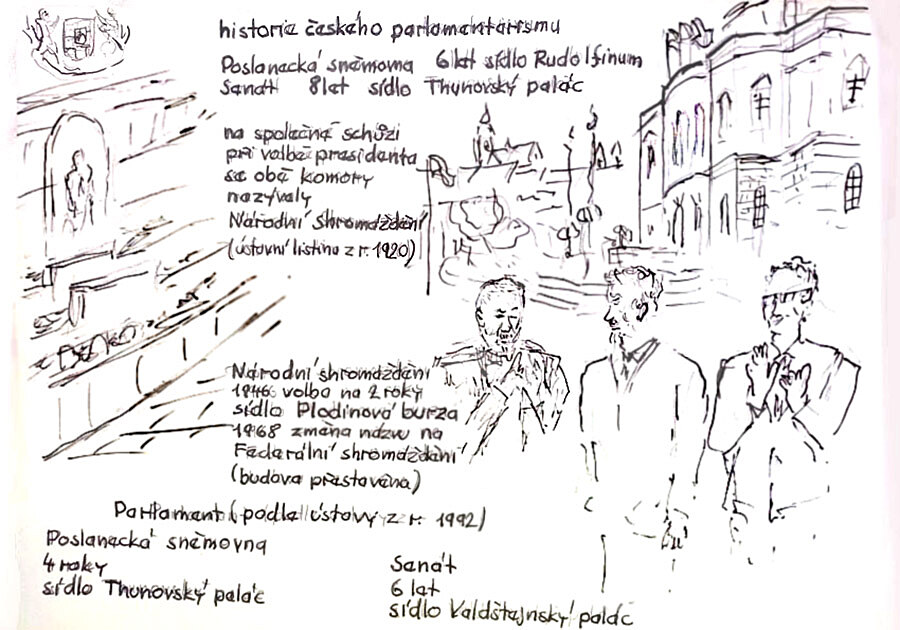 historie českého parlamentarismu
Poslanecká sněmovna 6 let sídlo Rudolfinum
Senát 8 let sídlo Thunovský palác
na společné schůzi
při volbě presidenta
se obě komory
nazývaly
Národní shromáždění
(ústavní listina z r. 1920)
Národní shromáždění
1946 volba na 2 roky
sídlo Plodinová burza
1968 změna názvu na
Federální shromáždění
(budova přestavěna)
Parlament (podle ústavy z r. 1992)
Poslanecká sněmovna
4 roky
sídlo Thunovský palác
Senát
6 let
sídlo Valdštejnský palác